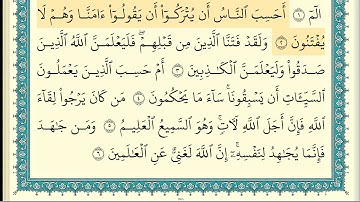 الٓمٓ ١ أَحَسِبَ ٱلنَّاسُ أَن يُتْرَكُوٓا۟ أَن يَقُولُوٓا۟ ءَامَنَّا وَهُمْ لَا
يُفْتَنُونَ ٢ وَلَقَدْ فَتَنَّا ٱلَّذِينَ مِن قَبْلِهِمْ ۖ فَلَيَعْلَمَنَّ ٱللَّهُ ٱلَّذِينَ
صَدَقُوا۟ وَلَيَعْلَمَنَّ ٱلْكَٰذِبِينَ ٣ أَمْ حَسِبَ ٱلَّذِينَ يَعْمَلُونَ
ٱلسَّيِّـَٔاتِ أَن يَسْبِقُونَا ۚ سَآءَ مَا يَحْكُمُونَ ٤ مَن كَانَ يَرْجُوا۟ لِقَآءَ
ٱللَّهِ فَإِنَّ أَجَلَ ٱللَّهِ لَـَٔاتٍ ۚ وَهُوَ ٱلسَّمِيعُ ٱلْعَلِيمُ ٥ وَمَن جَٰهَدَ
فَإِنَّمَا يُجَٰهِدُ لِنَفْسِهِۦٓ ۚ إِنَّ ٱللَّهَ لَغَنِىٌّ عَنِ ٱلْعَٰلَمِينَ ٦